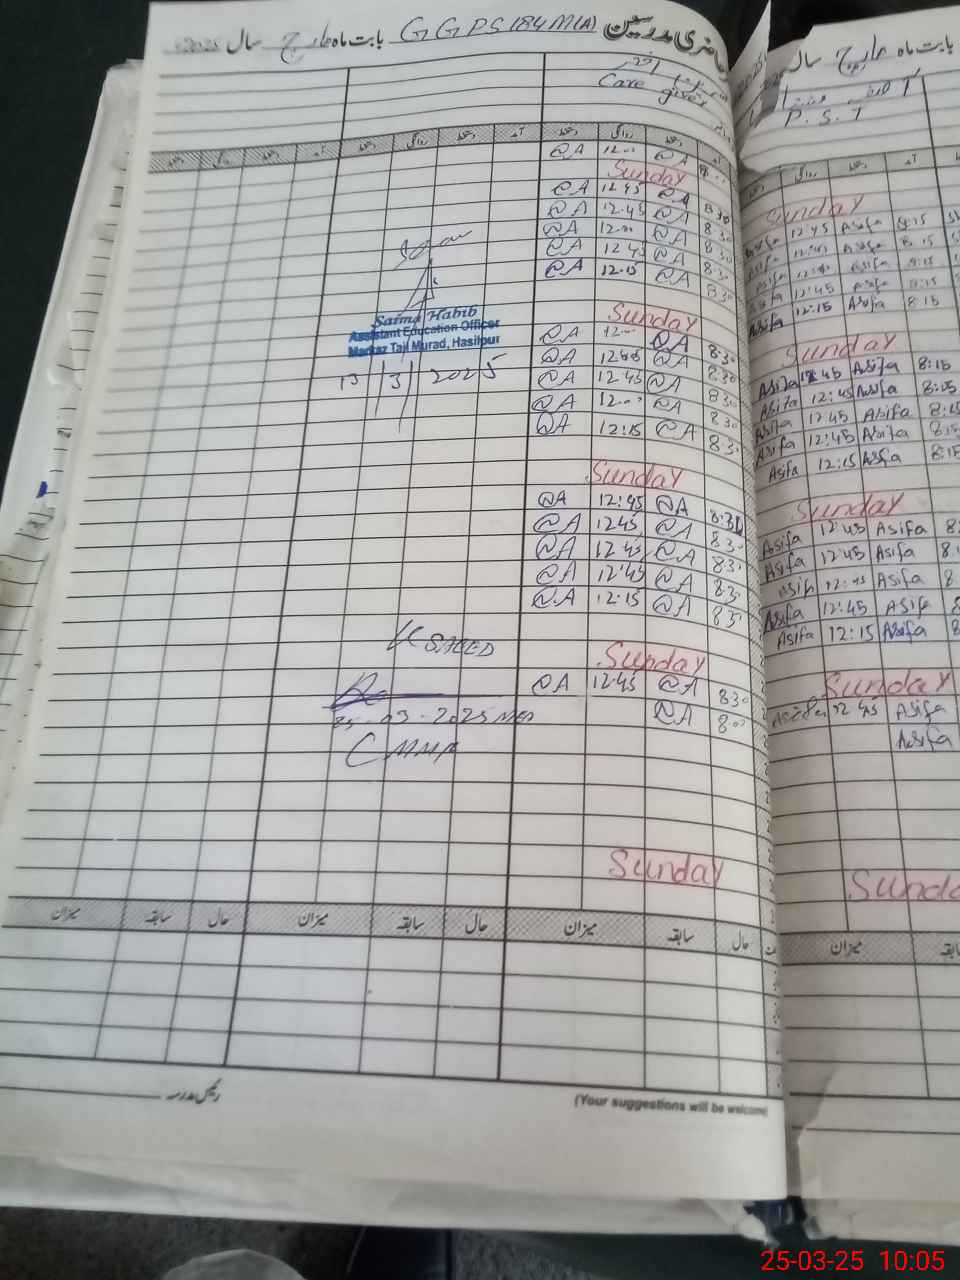 حاضری مدرسین GGPS 184M(A) بابت ماہ مارچ سال 2025
Care giver
آمد دستخط روانگی دستخط آمد دستخط روانگی دستخط آمد دستخط روانگی دستخط
@A 12.00 @A 8:00
Sunday
@A 12.45 @A 8.30
@A 12.45 @A 8.30
@A 12.00 @A 8.30
@A 12.45 @A 8.30
@A 12.15 @A 8.30
Saima Habib
Assistant Education Officer
Markaz Tail Murad, Hasilpur
13/3/2025
Sunday
@A 12.00 @A 8.30
@A 12.45 @A 8.30
@A 12.45 @A 8.30
@A 12.00 @A 8.30
@A 12:15 @A 8.30
Sunday
@A 12:45 @A 8:30
@A 1245 @A 8.30
@A 12.45 @A 8.30
@A 12.45 @A 8.30
@A 12.15 @A 8.30
SAEED
Sunday
@A 12.45 @A 8.30
@A 8.00
25-03-2025
Sunday
حال سابقہ میزان حال سابقہ میزان حال سابقہ میزان
رئیس مدرسہ
(Your suggestions will be welcome)
بابت ماہ مارچ سال
P.S.T
آمد دستخط روانگی
Sunday
Asifa 12:45 Asifa 8:15
Asifa 12:45 Asifa 8:15
Asifa Asifa 8:15
Asifa 12:45 Asifa 8:15
Asifa 12:15 Asifa 8:15
Sunday
Asifa 12:45 Asifa 8:15
Asifa 12:45 Asifa 8:05
Asifa 12:45 Asifa 8:15
Asifa 12:45 Asifa 8:15
Asifa 12:15 Asifa 8:15
Sunday
Asifa 12:45 Asifa 8:
Asifa 12:45 Asifa 8:
Asifa 12:45 Asifa 8
Asifa 12:45 Asifa 8
Asifa 12:15 Asifa 8
Sunday
Asifa 12:45 Asifa
Asifa
Sunda
میزان
25-03-25 10:05